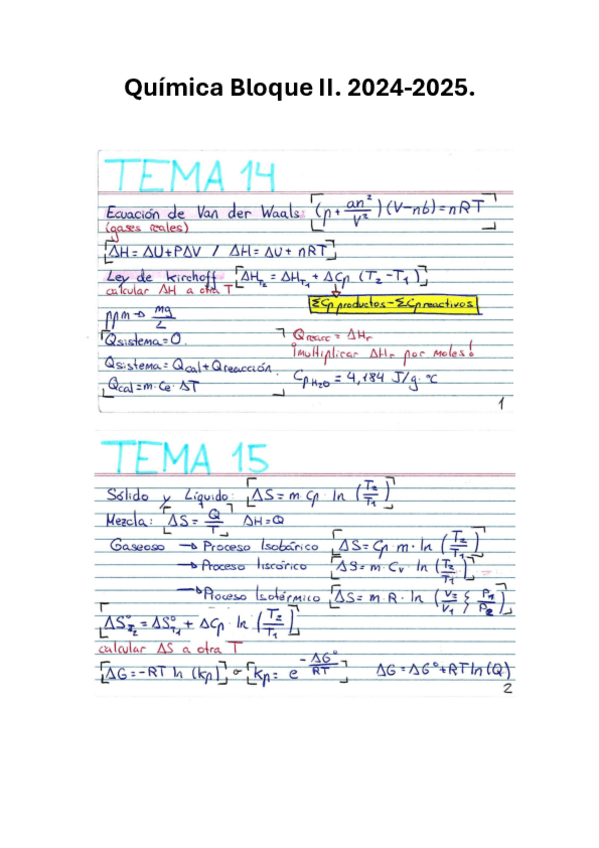 Química Bloque II. 2024-2025.
TEMA 14
Ecuación de Van der Waals: (p + an²/V²)(V-nb) = nRT
(gases reales)
ΔH = ΔU + PΔV / ΔH = ΔU + nRT
Ley de Kirchoff ΔH_T₂ = ΔH_T₁ + ΔCp (T₂ - T₁)
calcular ΔH a otra T
ΣCp productos - ΣCp reactivos
ppm → mg/L
Qsistema = 0
Qreacc = ΔHr
¡multiplicar ΔHr por moles!
Qsistema = Qcal + Qreacción
Qcal = m · Ce · ΔT
Cp H₂O = 4,184 J/g · °C
1
TEMA 15
Sólido y Líquido: ΔS = m Cp · ln (T₂/T₁)
Mezcla: ΔS = Q/T ΔH = Q
Gaseoso → Proceso Isobárico ΔS = Cp · m · ln (T₂/T₁)
→ Proceso Iscórico ΔS = m · Cv · ln (T₂/T₁)
→ Proceso Isotérmico ΔS = m · R · ln (V₂/V₁ ; P₁/P₂)
ΔS°_T₂ = ΔS°_T₁ + ΔCp · ln (T₂/T₁)
calcular ΔS a otra T
ΔG = -RT ln (kp) o kp = e^(-ΔG°/RT) ΔG = ΔG° + RT ln (Q)
2